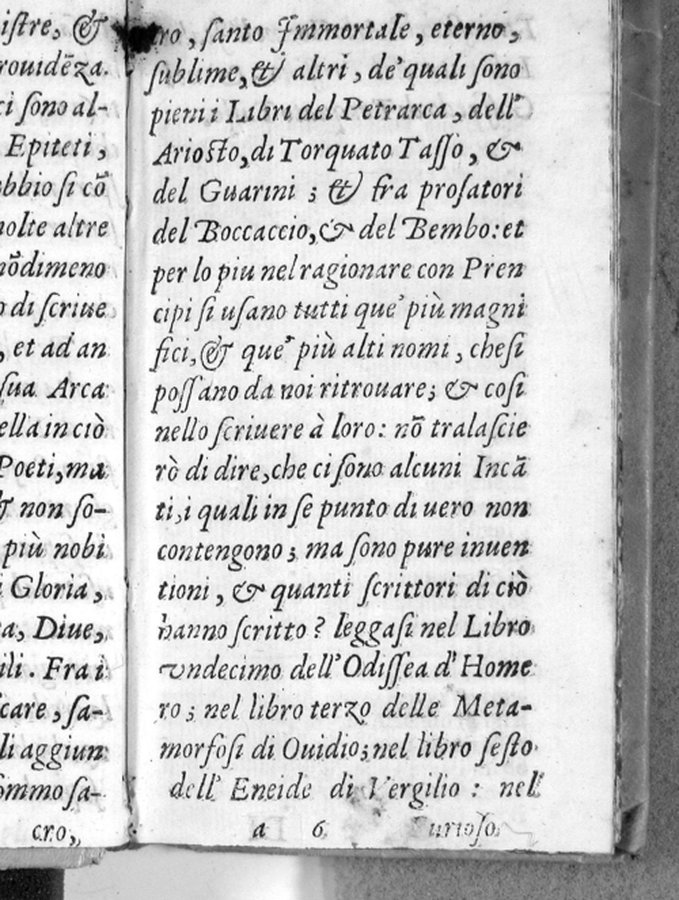 istre, &
rouidēza.
ci sono al-
Epiteti,
bbio si cō
olte altre
nōdimeno
o di scriue
, et ad an
sua Arca
ella in ciò
Poeti, ma
& non so-
più nobi
i Gloria,
a, Diue,
ili. Fra i
care, sa-
li aggiun
ommo sa-
cro,
cro, santo Immortale, eterno,
sublime, & altri, de' quali sono
pieni i Libri del Petrarca, dell'
Ariosto, di Torquato Tasso, &
del Guarini ; & fra prosatori
del Boccaccio, & del Bembo: et
per lo piu nel ragionare con Pren
cipi si usano tutti que' più magni
fici, & que' più alti nomi, che si
possano da noi ritrouare; & così
nello scriuere à loro: nō tralascie
rò di dire, che ci sono alcuni Incā
ti, i quali in se punto di uero non
contengono ; ma sono pure inuen
tioni, & quanti scrittori di ciò
hanno scritto ? leggasi nel Libro
vndecimo dell'Odissea d'Home
ro ; nel libro terzo delle Meta-
morfosi di Ouidio; nel libro sesto
dell' Eneide di Vergilio : nel
a 6 urioso